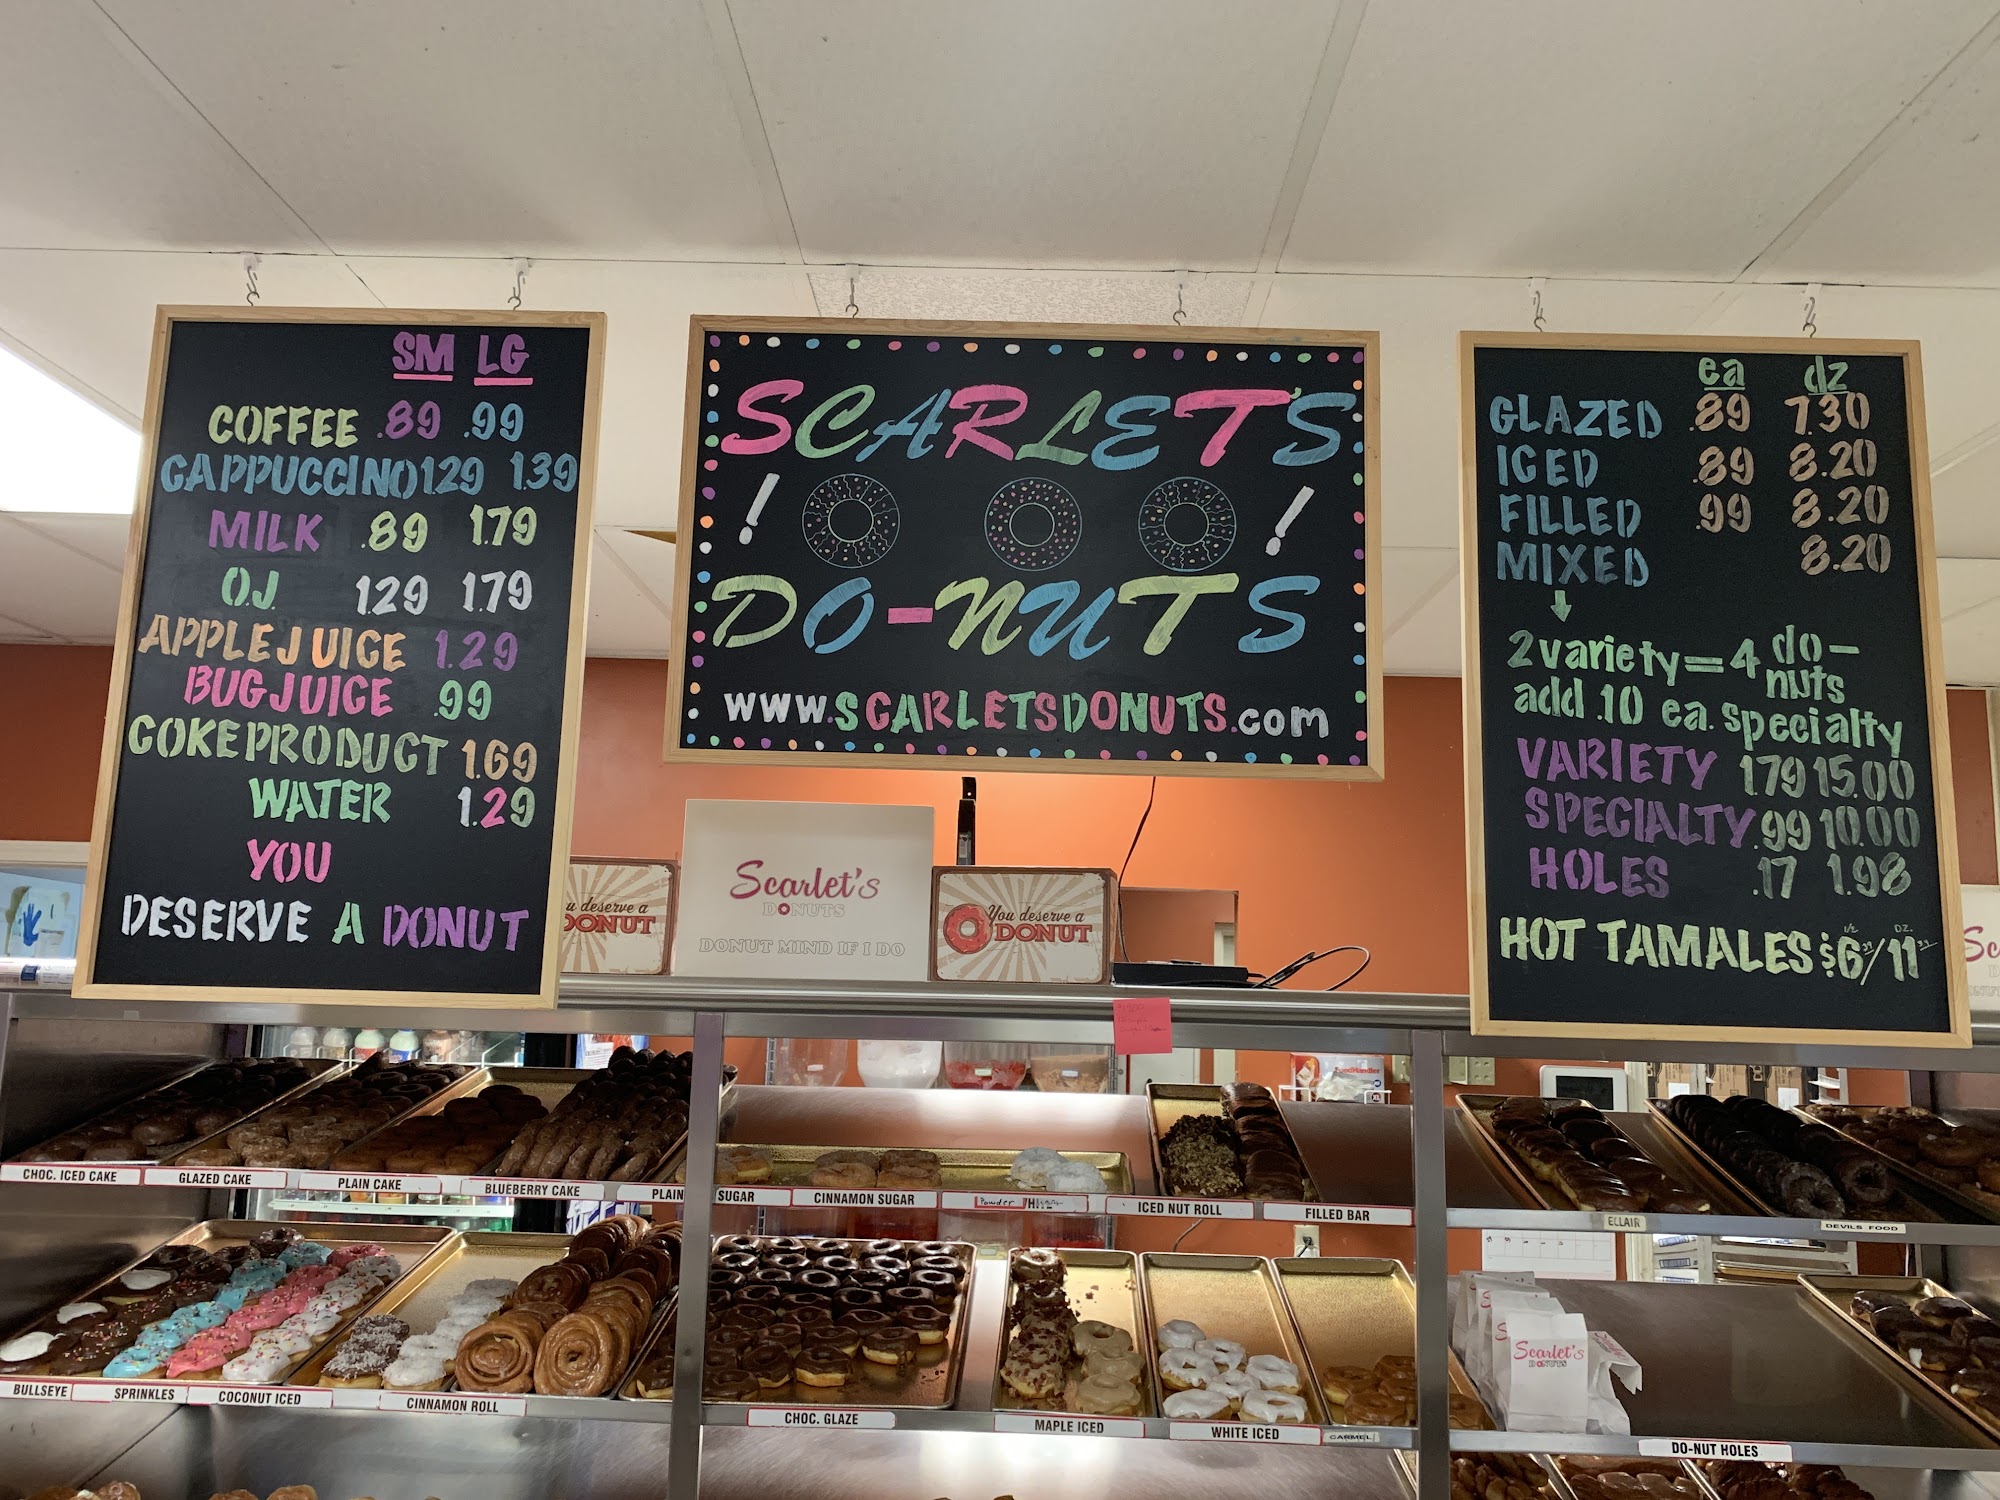 SM LG
COFFEE .89 .99
CAPPUCCINO 1.29 1.39
MILK .89 1.79
O.J. 1.29 1.79
APPLE JUICE 1.29
BUG JUICE .99
COKE PRODUCT 1.69
WATER 1.29
YOU
DESERVE A DONUT
SCARLET'S
! !
DO-NUTS
WWW.SCARLETSDONUTS.com
ea dz
GLAZED .89 7.30
ICED .89 8.20
FILLED .99 8.20
MIXED 8.20
2 variety = 4 do-
nuts
add .10 ea. specialty
VARIETY 1.79 15.00
SPECIALTY .99 10.00
HOLES .17 1.98
HOT TAMALES $6/11
1/2 DZ.
u deserve a
DONUT
Scarlet's
DONUTS
DONUT MIND IF I DO
You deserve a
DONUT
Sc
CHOC. ICED CAKE
GLAZED CAKE
PLAIN CAKE
BLUEBERRY CAKE
PLAIN SUGAR
CINNAMON SUGAR
Powder
ICED NUT ROLL
FILLED BAR
ECLAIR
DEVILS FOOD
BULLSEYE
SPRINKLES
COCONUT ICED
CINNAMON ROLL
CHOC. GLAZE
MAPLE ICED
WHITE ICED
CARMEL
Scarlet's
DONUTS
DO-NUT HOLES